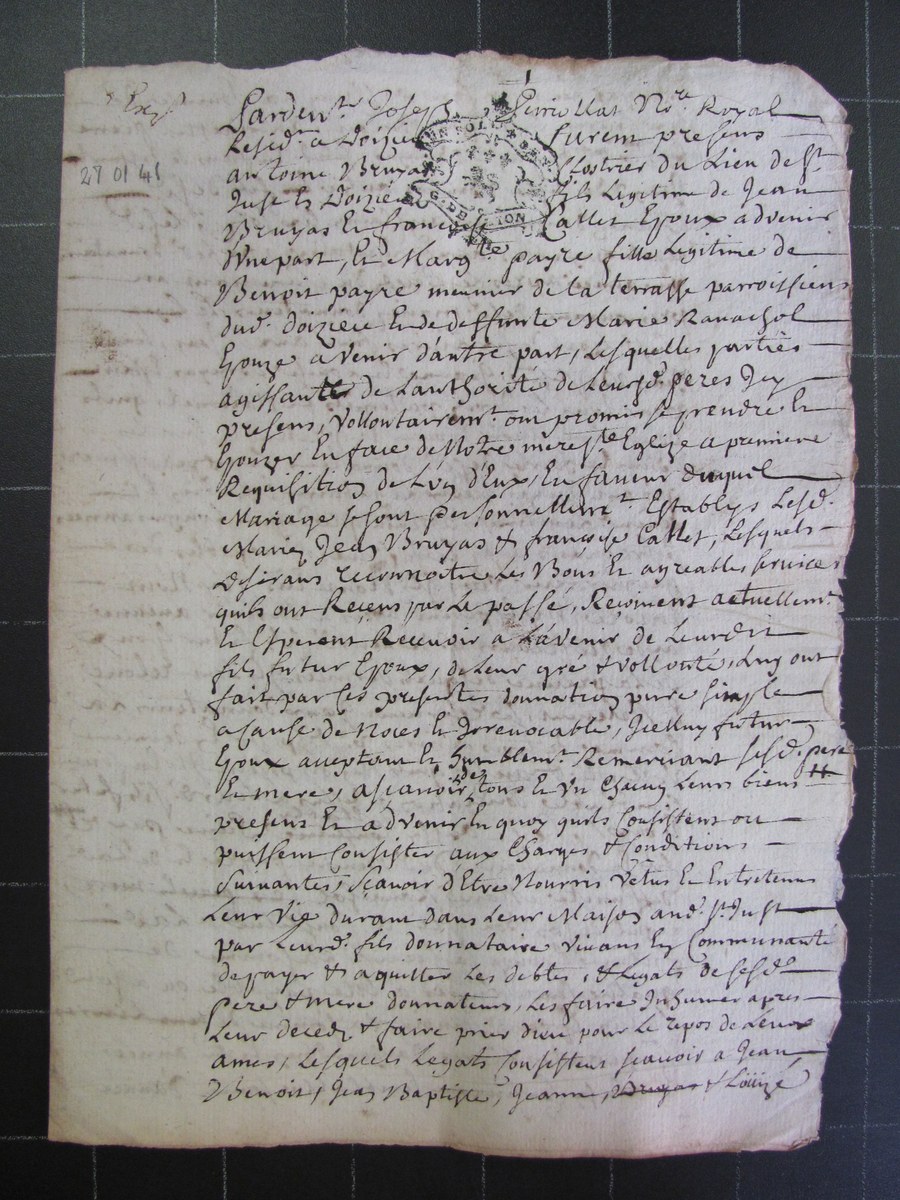 Exp
27 01 41
Pardevt Joseph Perrollat Nre Royal
Residt a Doizieu furent presens
antoine Bruyas Clostrier du Lieu de St
Just En Doizieu fils Legitime de Jean
Bruyas Et françoise Callet Epoux advenir
D'une part, Et Margtte payre fille Legitime de
Benoit payre meunier de La terrasse parroissiens
dud. doizieu Et de deffunte Marie Ravachol
Epouze a venir d'autre part, Lesquelles parties
agissants de L'authorité de Leursd. peres Icy
presens, vollontairemt. ont promis se prendre Et
Epouzer En face de Notre mere ste Eglize a premiere
Requisition de L'un d'Eux, En faveur duquel
Mariage se sont personnellemt. Establys Lesd.
Mariés Jean Bruyas & françoise Callet, Lesquels
desirans reconnoitre Les Bons Et agreables services
quils ont Reçeus par Le passé, Reçoivent actuellemt.
Et Esperent Recevoir a L'avenir de Leurdit
fils futur Epoux, de Leur gré & vollonté, Luy ont
fait par ces presentes donnation pure simple
a cause de Noces Et Irrevocable, Icelluy futur
Epoux acceptant Et humblemt. Remerciant sesd. pere
Et mere, a sçavoir de tous Et Un Chacun Leurs biens
presens Et advenir En quoy quils Consistent ou
puissent Consister aux Charges & Conditions
Suivantes, sçavoir d'Etre Nourris vetus Et Entretenus
Leur vie durant dans Leur Maison aud. St Just
par Leurd. fils donnataire vivans En Communauté
de payer & aquitter Les debtes, & Legats de sesd.
pere & mere donnateurs, Les faire Inhumer apres
Leur deceds & faire prier dieu pour Le repos de Leurs
ames, Lesquels Legats Consistent sçavoir a Jean,
Benoit, Jean Baptiste, Jeanne, Bruyas & Loüize